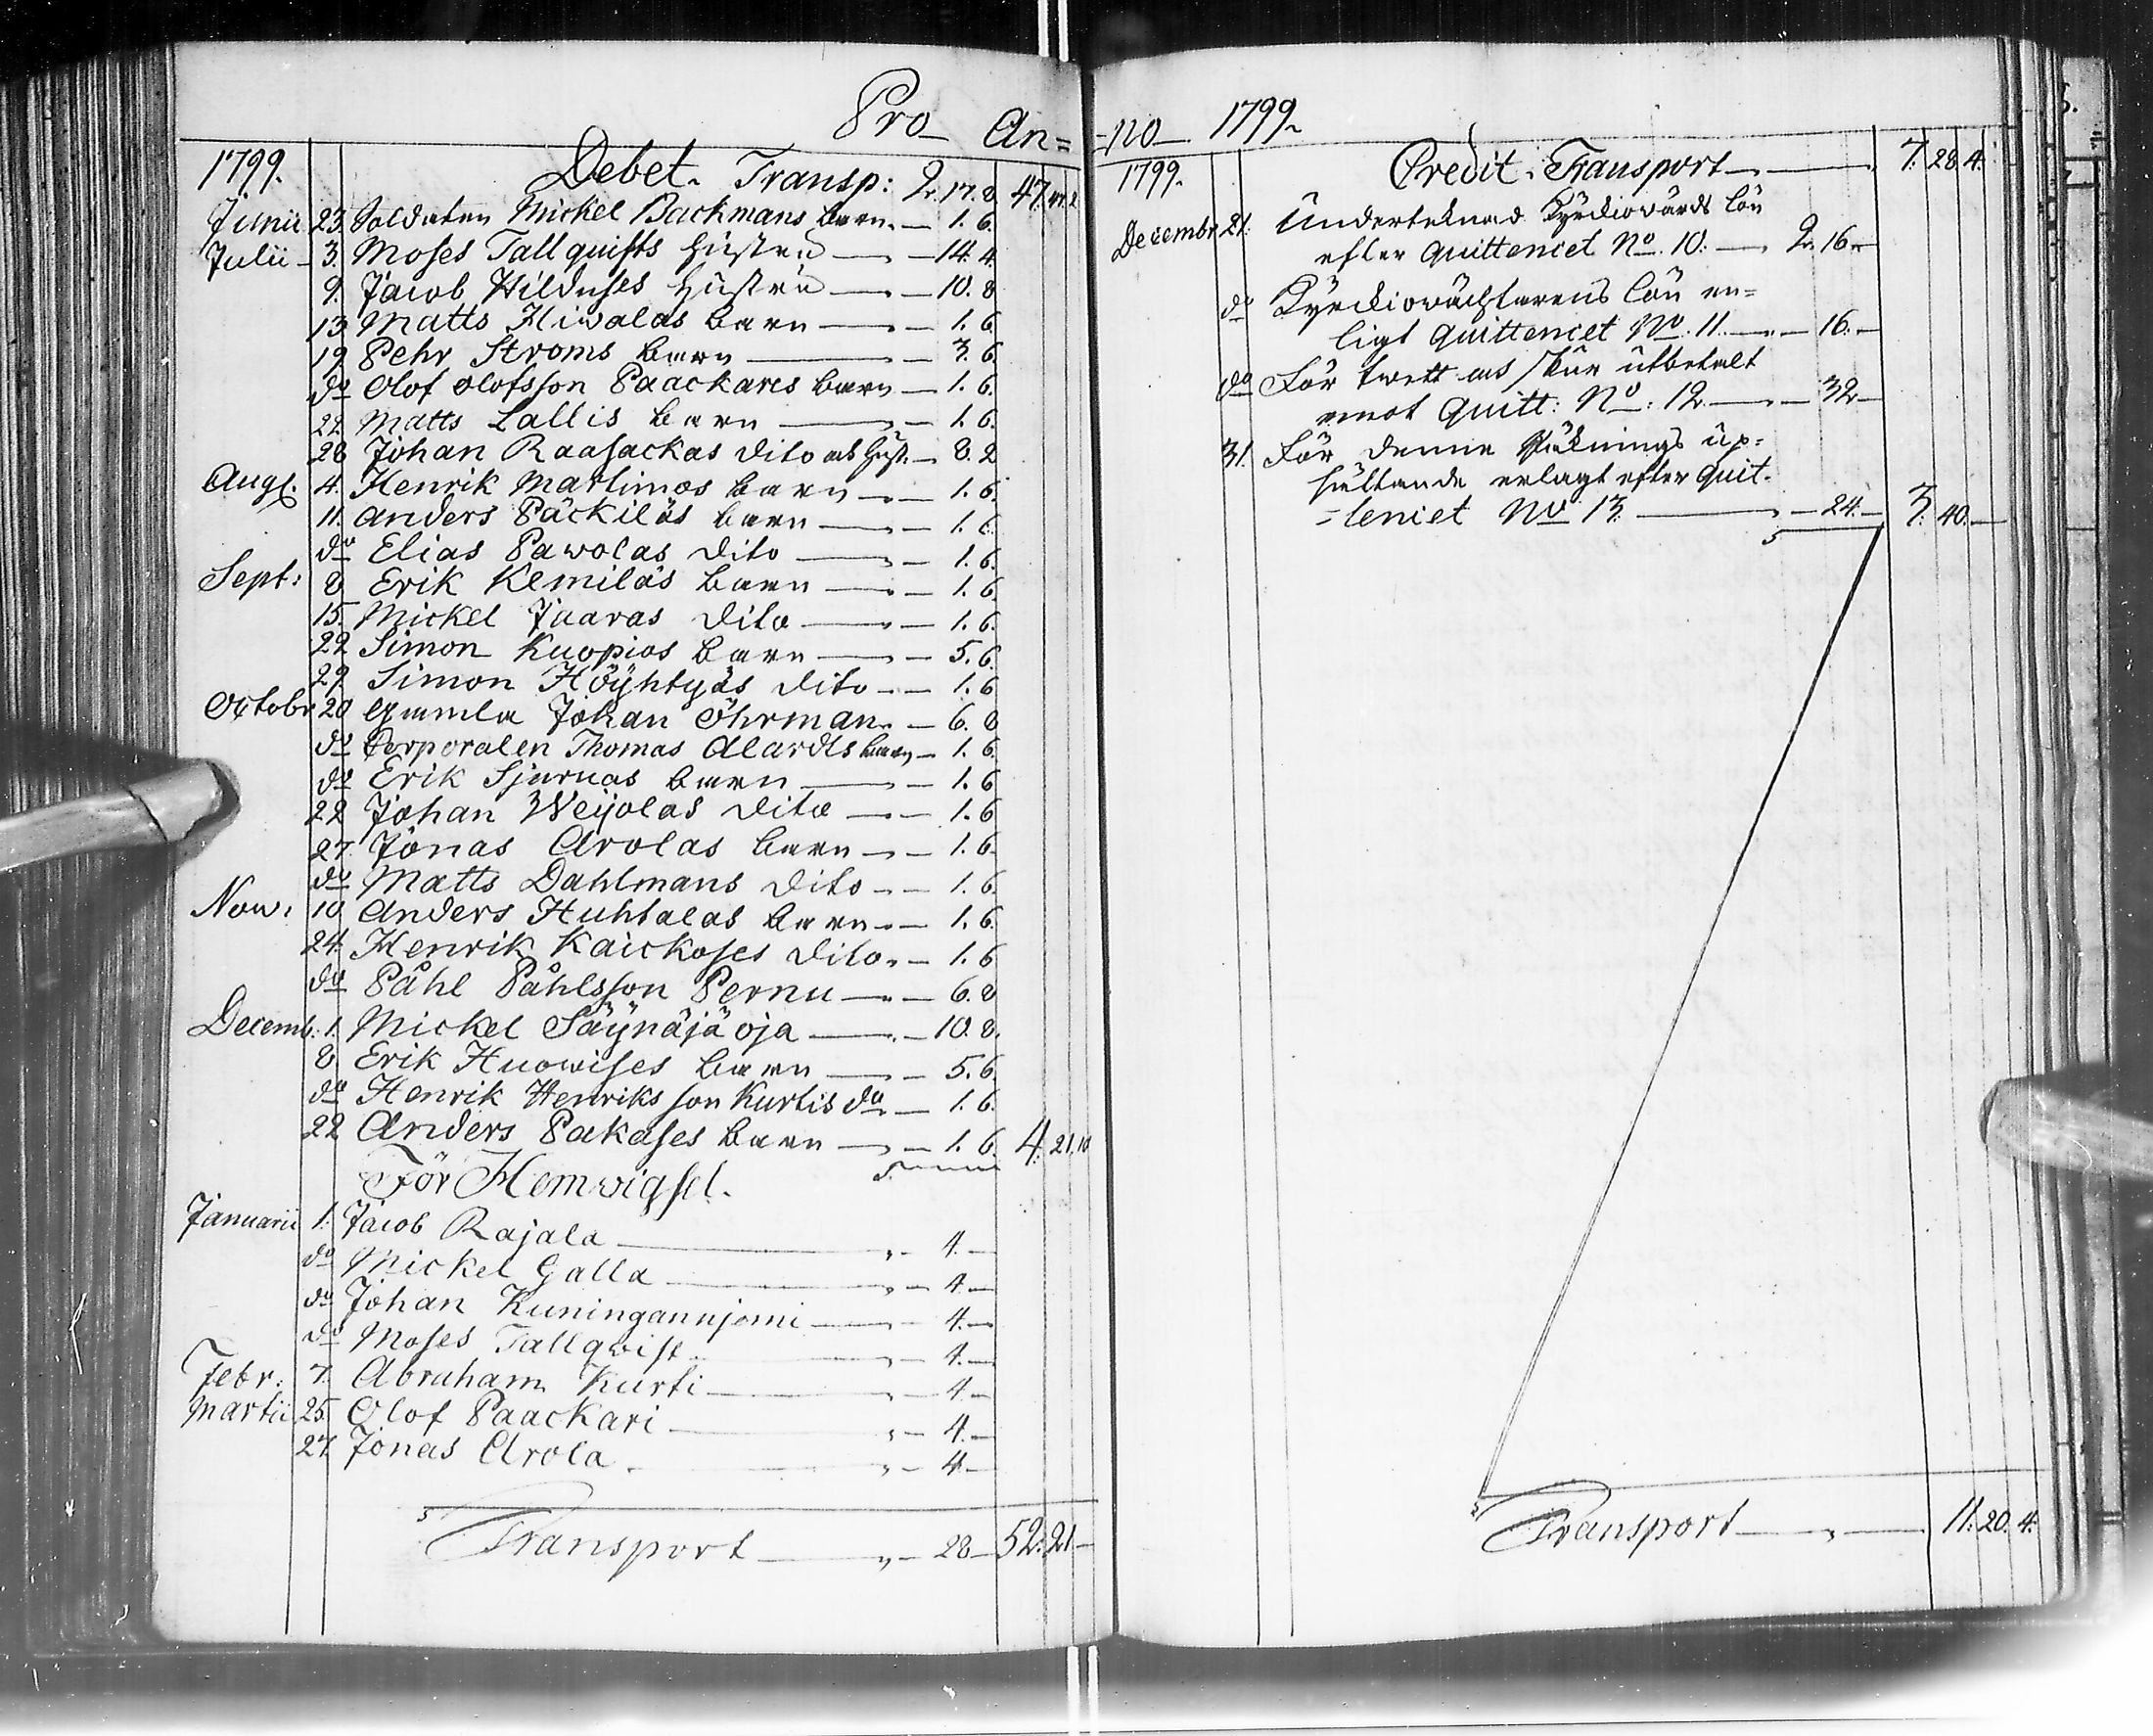 Pro An=
1799. Debet. Transp: 2. 17. 8. 47. 47. 2
Junii 23. Soldaten Mickel Backmans barn. — 1. 6.
Julii — 3. Moses Tallquists Hustru — 14. 4.
9. Jacob Hilduses Hustru — 10. 8
13 Matts Hiwalas barn — 1. 6.
19 Pehr Ströms barn — 3. 6.
do Olof Olofsson Paackares barn — 1. 6.
22. Matts Lallis barn — 1. 6.
28 Johan Raasackas dito och Hust. — 8. 2
Aug. 4. Henrik Martimos barn — 1. 6.
11. Anders Päckiläs barn — 1. 6.
do Elias Pawolas dito — 1. 6.
Sept: 8 Erik Kemiläs barn — 1. 6.
15. Mickel Jaaras dito — 1. 6.
22 Simon Kuopios barn — 5. 6.
29. Simon Höÿhtyäs dito — 1. 6
Octobr 20 Gamla Johan Öhrman. — 6. 8
do Corporalen Thomas Alardts barn — 1. 6.
do Erik Sjurnas barn — 1. 6
22 Johan Weijolas dito — 1. 6
27. Jonas Arolas barn — 1. 6.
do Matts Dahlmans dito — 1. 6.
Now: 10 Anders Huhtalas barn — 1. 6.
24. Henrik Kaickoses dito. — 1. 6
do Påhl Påhlsson Pernu — 6. 8
Decemb: 1. Mickel Säÿnäjäoja — 10. 8.
8 Erik Huowises barn — 5. 6.
do Henrik Henriksson Kurtis do — 1. 6.
22 Anders Pakases barn — 1. 6. 4. 21. 10
För Hemwigsel.
Januarii 1. Jacob Rajala — 4. —
do Mickel Galla — 4 —
do Johan Kuningannjomi — 4. —
do Moses Tallqwist — 4. —
Febr: 7. Abraham Kurti — 4 —
Martii 25. Olof Paackari — 4. —
27. Jonas Arola — 4 —
Transport — 28 — 52. 21 —
-no 1799.
1799. Credit. Transport — 7. 28. 4.
Decembr 21. Underteknad Kyrckiowärds lön
efter quittencet No. 10. — 2. 16. —
do Kyrckiowächtarens lön en=
ligt quittencet No. 11. — 16. —
do För twett och skur utbetalt
emot Quitt: No: 12 — 32 —
31. För denna Räknings up=
sättande erlagt efter quit-
=tencet No 13. — 24. — 3. 40. —
Transport — 11. 20. 4.